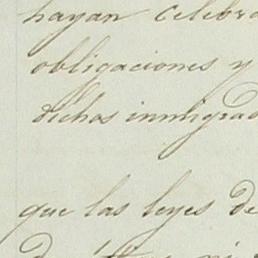 hayan celebra
obligaciones y
dichos inmigrad
que las leyes de